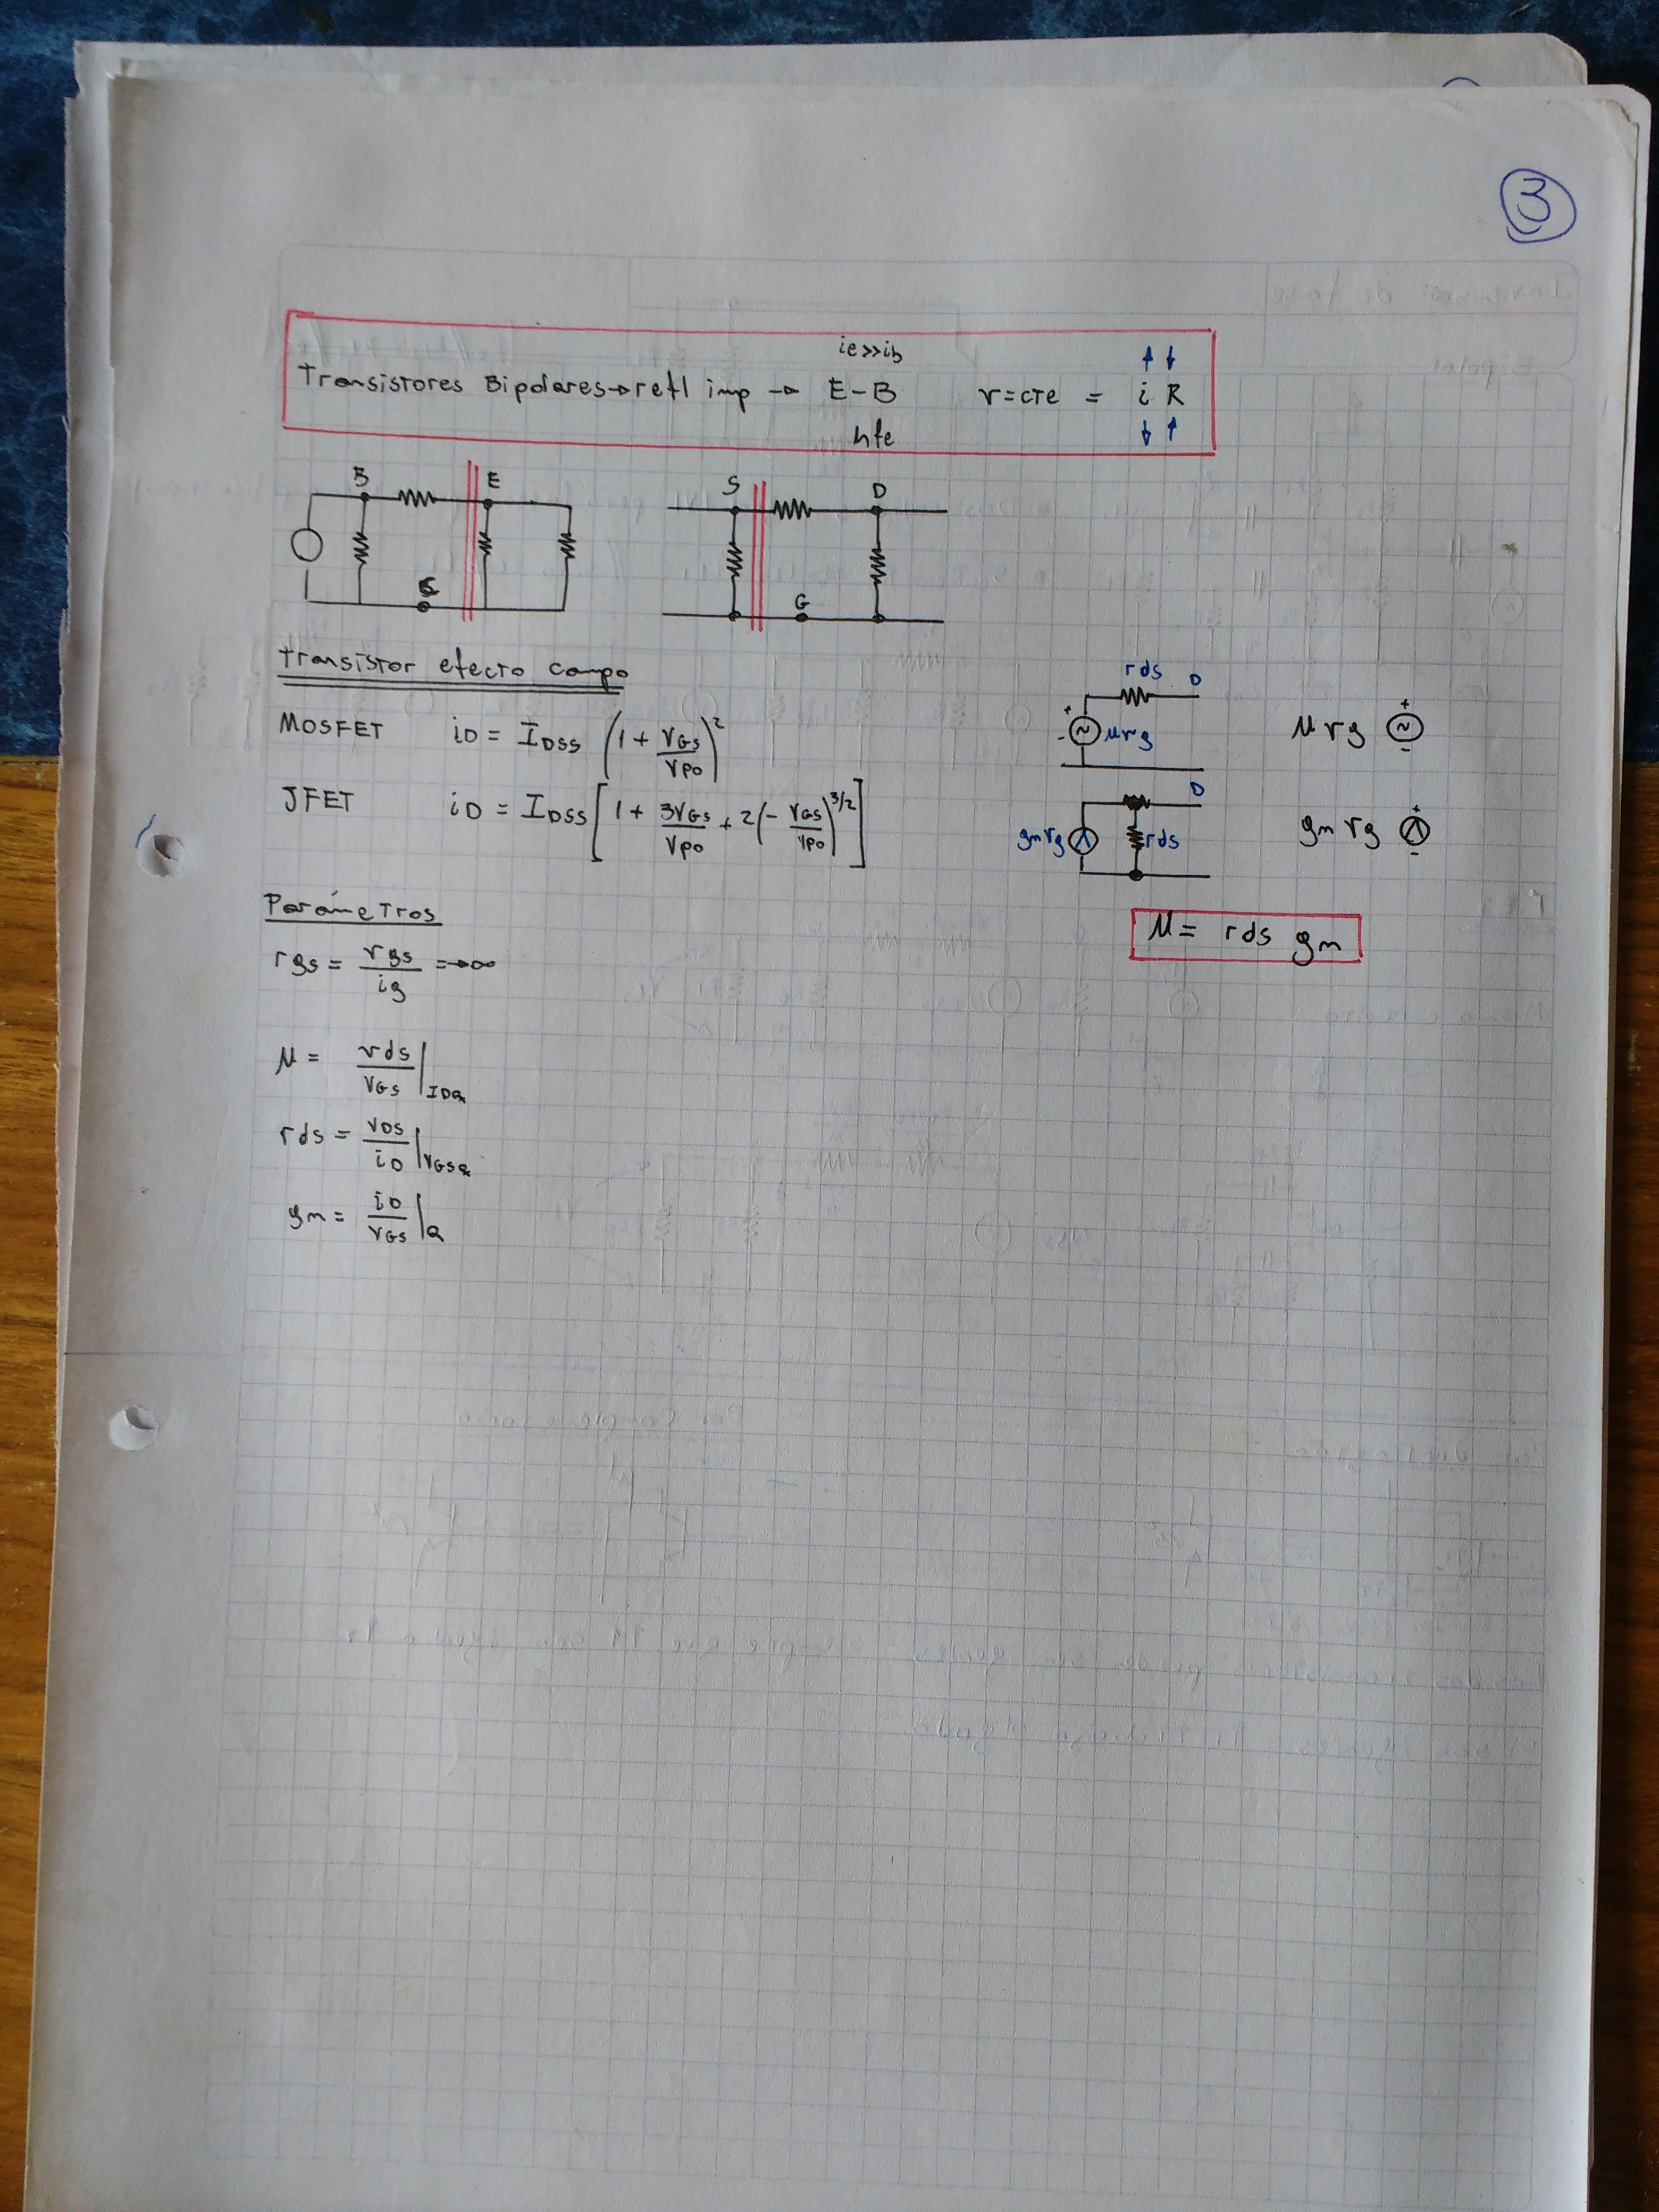 3
ie>>ib ↑ ↓
Transistores Bipolares→refl imp → E-B v=cte = i R
hfe ↓ ↑
B E S D
C G
Transistor efecto campo
MOSFET iD = IDSS (1 + vGS/Vpo)^2
JFET iD = IDSS [1 + 3vGS/Vpo + 2(-vGS/Vpo)^3/2]
rds D
+ - ~ μvg μvg + ~ -
D
gmvg rds gm vg + -
Parámetros
μ = rds gm
rgs = vgs/ig =→∞
μ = vds/vGS |IDQ
rds = vDS/iD |VGSQ
gm = iD/vGS |Q